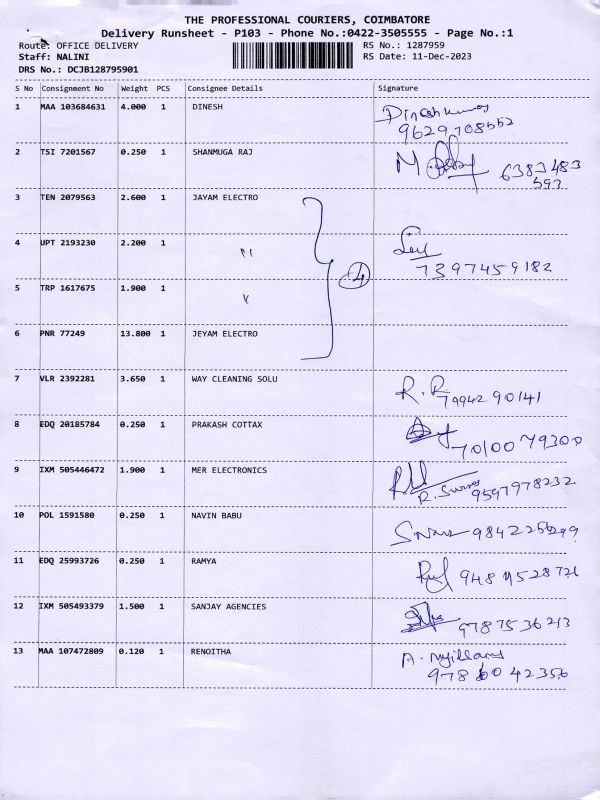 THE PROFESSIONAL COURIERS, COIMBATORE
Delivery Runsheet - P103 - Phone No.:0422-3505555 - Page No.:1
Route: OFFICE DELIVERY RS No.: 1287959
Staff: NALINI RS Date: 11-Dec-2023
DRS No.: DCJB128795901
S No Consignment No Weight PCS Consignee Details Signature
1 MAA 103684631 4.000 1 DINESH Dineshkumar
9629708552
2 TSI 7201567 0.250 1 SHANMUGA RAJ 6383483
593
3 TEN 2079563 2.600 1 JAYAM ELECTRO
4 UPT 2193230 2.200 1 " 4
7397459182
5 TRP 1617675 1.900 1 "
6 PNR 77249 13.800 1 JEYAM ELECTRO
7 VLR 2392281 3.650 1 WAY CLEANING SOLU R. R
79942 90141
8 EDQ 20185784 0.250 1 PRAKASH COTTAX
7010079300
9 IXM 505446472 1.900 1 MER ELECTRONICS
9597978232
10 POL 1591580 0.250 1 NAVIN BABU
11 EDQ 25993726 0.250 1 RAMYA
12 IXM 505493379 1.500 1 SANJAY AGENCIES
9787536213
13 MAA 107472809 0.120 1 RENOITHA A.
9786042356